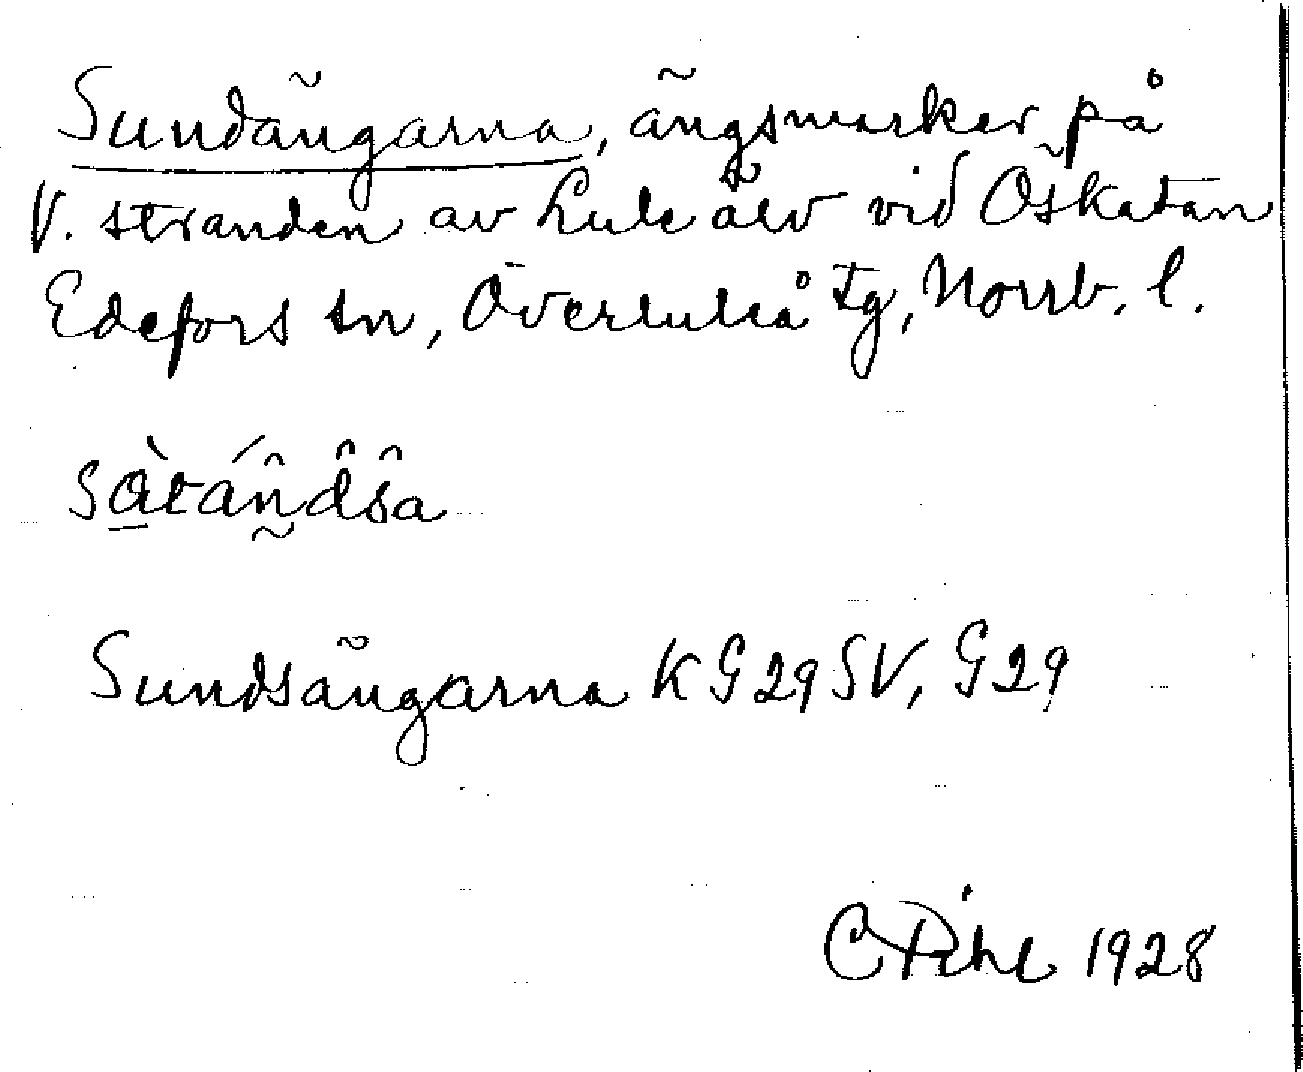 Sundängarna, ängsmarker på
V. stranden av Lule älv vid Öskatan
Edefors sn, Överluleå tg, Norrb. l.
Sundsängarna K G 29 SV, G 29
C Pihl 1928